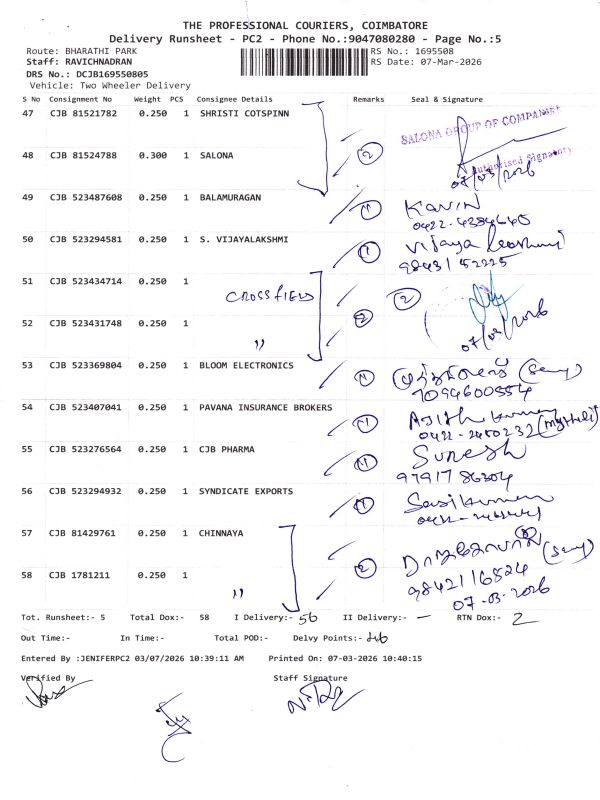 THE PROFESSIONAL COURIERS, COIMBATORE
Delivery Runsheet - PC2 - Phone No.:9047080280 - Page No.:5
Route: BHARATHI PARK RS No.: 1695508
Staff: RAVICHNADRAN RS Date: 07-Mar-2026
DRS No.: DCJB169550805
Vehicle: Two Wheeler Delivery
S No Consignment No Weight PCS Consignee Details Remarks Seal & Signature
47 CJB 81521782 0.250 1 SHRISTI COTSPINN
SALONA GROUP OF COMPANIES
48 CJB 81524788 0.300 1 SALONA 2
Authorised Signatory
07/03/2026
49 CJB 523487608 0.250 1 BALAMURAGAN 1 Kavin
50 CJB 523294581 0.250 1 S. VIJAYALAKSHMI 1 Vijaya Lakshmi
98431 52225
51 CJB 523434714 0.250 1 CROSSFIELD 2
52 CJB 523431748 0.250 1 " 2
07/03/2026
53 CJB 523369804 0.250 1 BLOOM ELECTRONICS 1
7094600554
54 CJB 523407041 0.250 1 PAVANA INSURANCE BROKERS 1 Ajith Kumar
0422-2480232
55 CJB 523276564 0.250 1 CJB PHARMA 1 Suresh
97917 86304
56 CJB 523294932 0.250 1 SYNDICATE EXPORTS 1 Sasikumar
57 CJB 81429761 0.250 1 CHINNAYA
58 CJB 1781211 0.250 1 " 2
98421 16524
07-03-2026
Tot. Runsheet:- 5 Total Dox:- 58 I Delivery:- 56 II Delivery:- — RTN Dox:- 2
Out Time:- In Time:- Total POD:- Delvy Points:-
Entered By :JENIFERPC2 03/07/2026 10:39:11 AM Printed On: 07-03-2026 10:40:15
Verified By Staff Signature